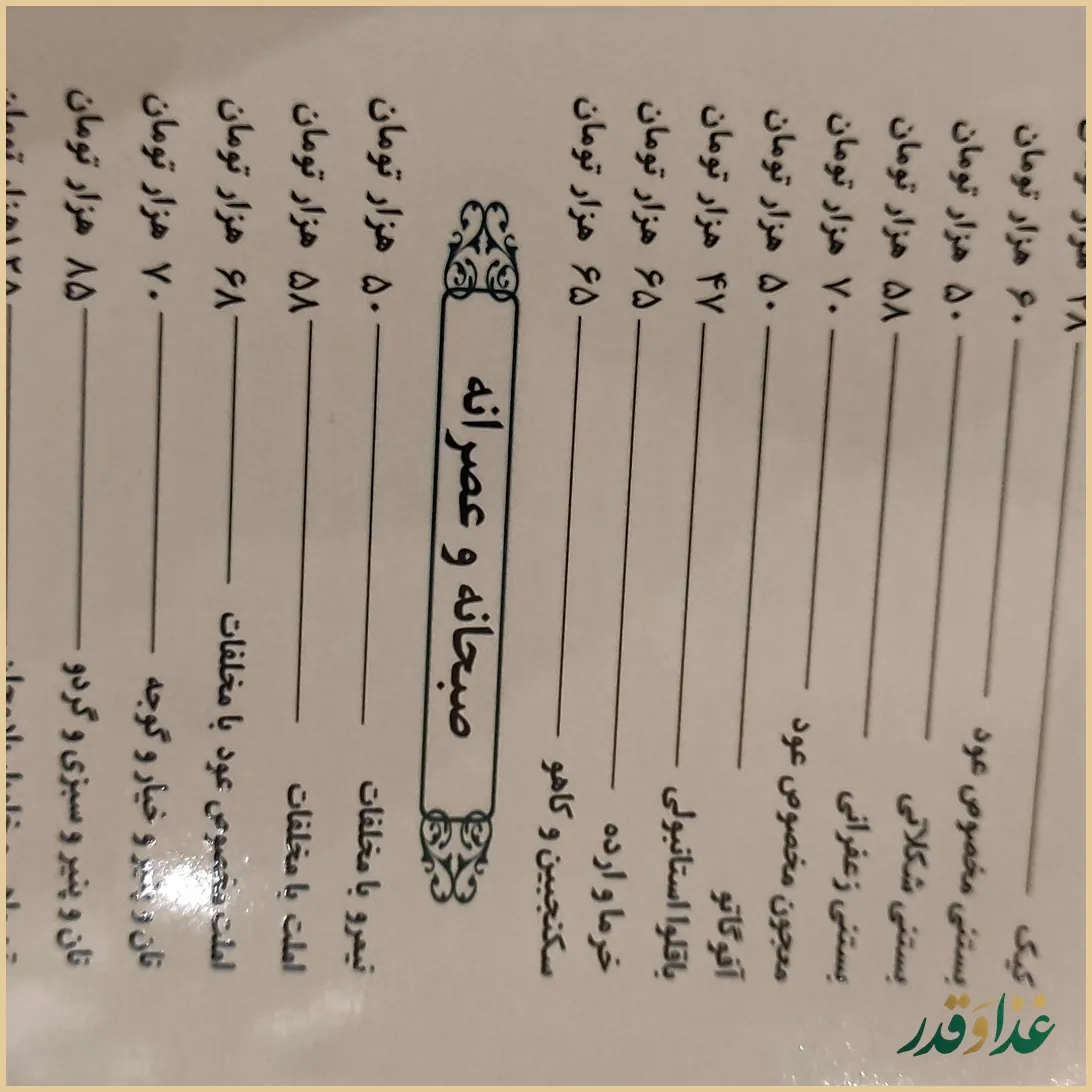 کیک هزار تومان
بستنی مخصوص عود ۶۰ هزار تومان
بستنی شکلاتی ۵۰ هزار تومان
بستنی زعفرانی ۵۸ هزار تومان
معجون مخصوص عود ۷۰ هزار تومان
آفوگاتو ۵۰ هزار تومان
باقلوا استانبولی ۴۷ هزار تومان
خرما و ارده ۶۵ هزار تومان
سکنجبین و کاهو ۶۵ هزار تومان
صبحانه و عصرانه
نیمرو با مخلفات ۵۰ هزار تومان
املت با مخلفات ۵۸ هزار تومان
املت مخصوص عود با مخلفات ۶۸ هزار تومان
نان و پنیر و خیار و گوجه ۷۰ هزار تومان
نان و پنیر و سبزی و گردو ۸۵ هزار تومان
غذا و قدر